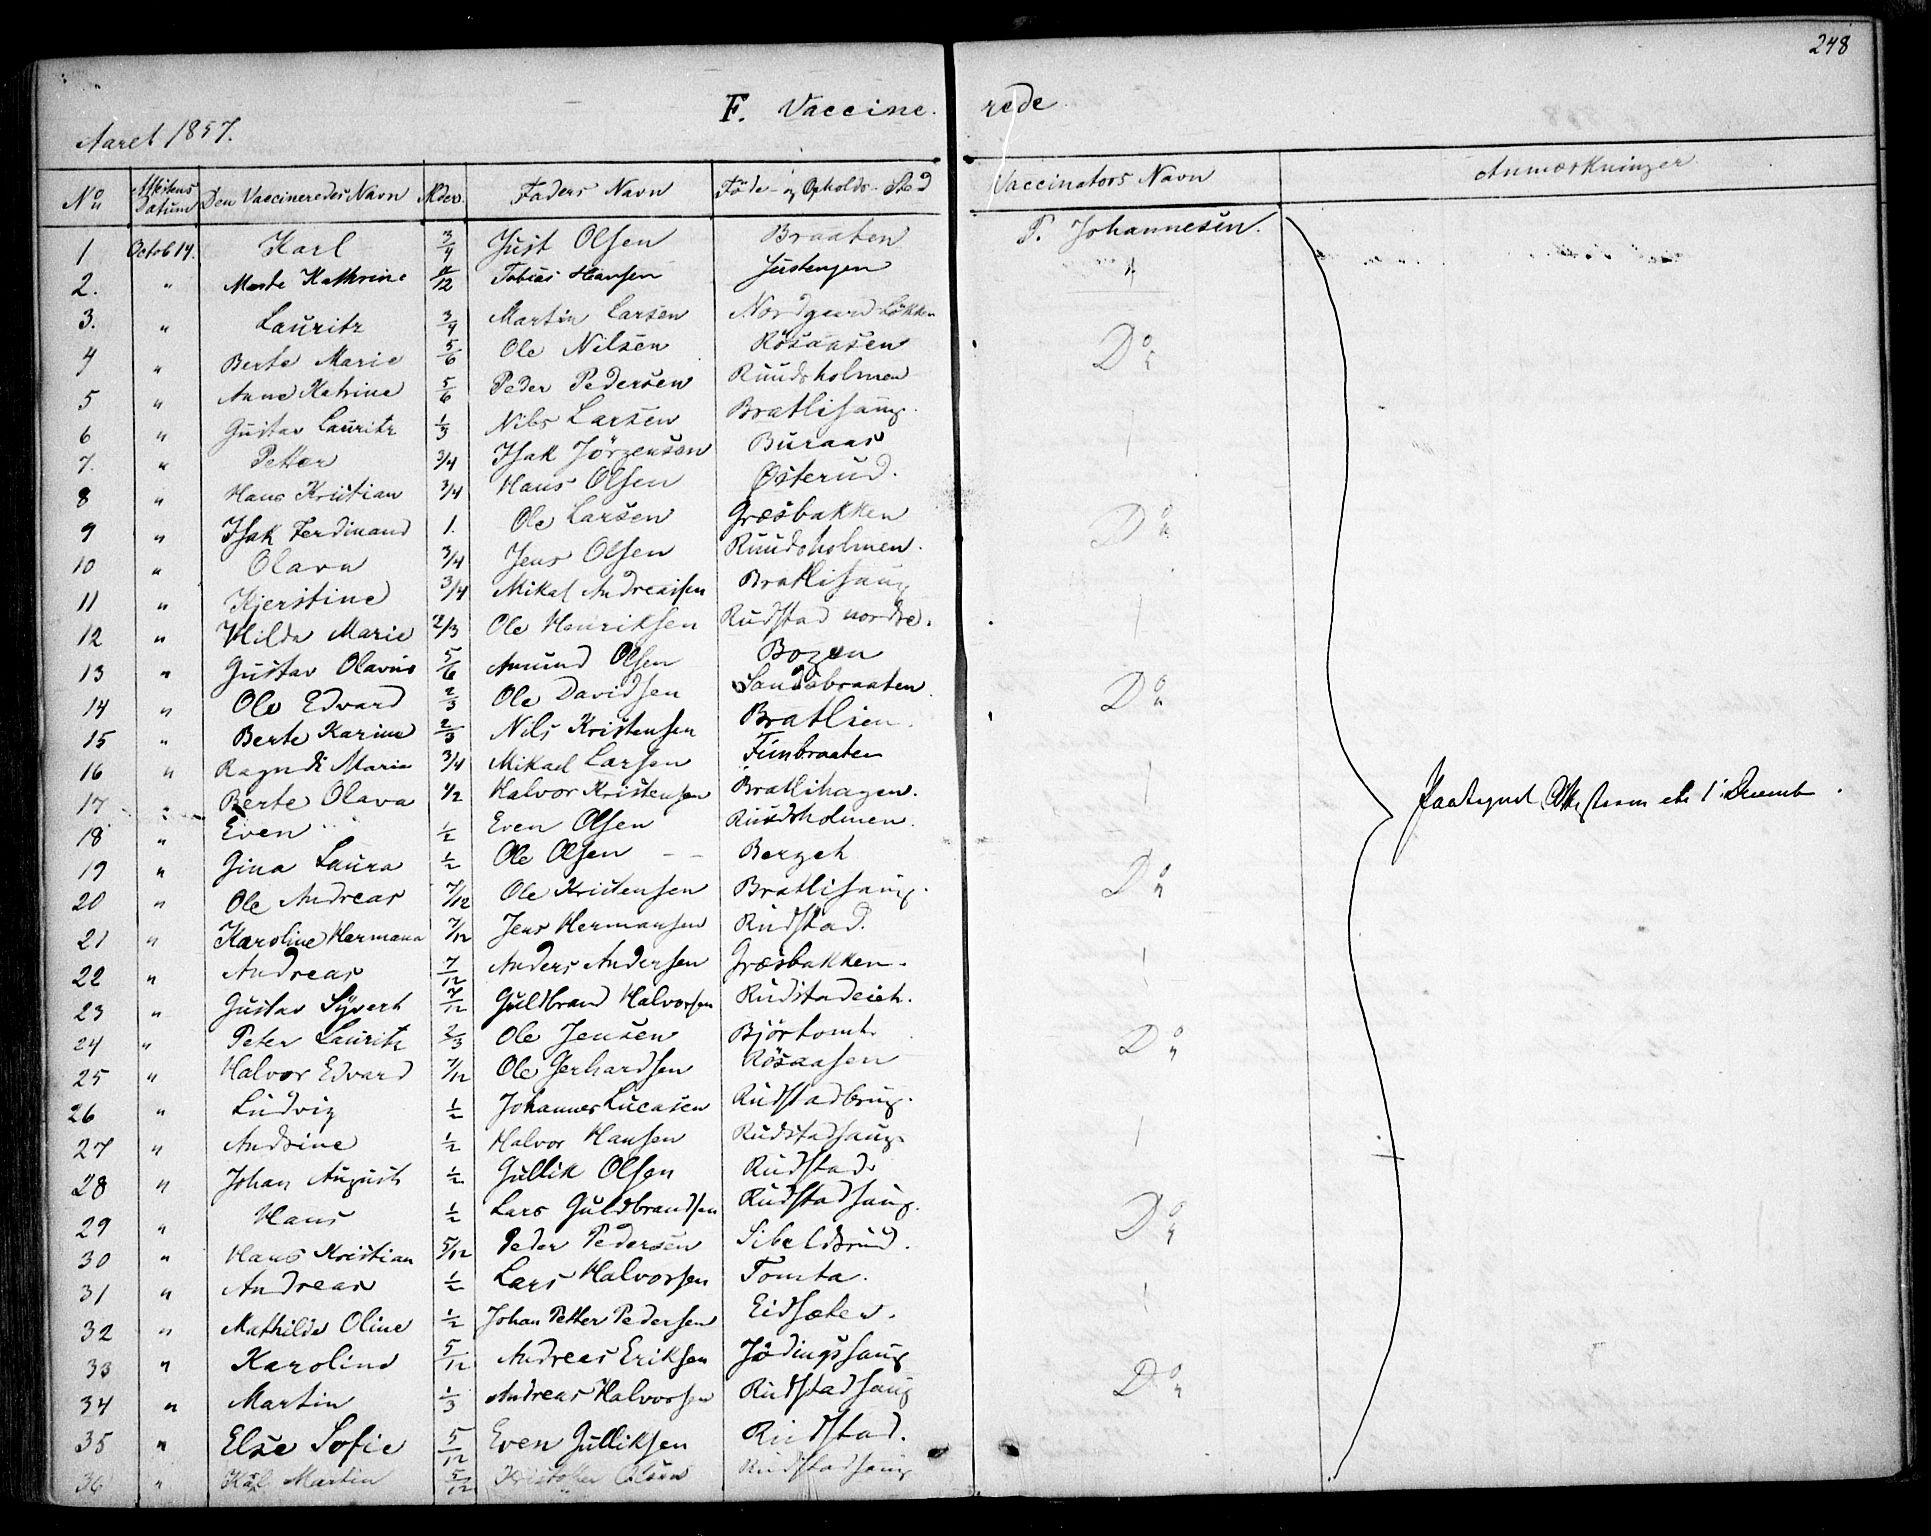 248
F. Vaccine- rede
Aaret 1857.
No Attestens Datum Den Vaccineredes Navn Alder. Faders Navn Føde- og Opholds-Sted Vaccinators Navn Anmærkninger
1 Octob 14. Karl 3/4 Just Olsen Braaten P. Johannesen.
2. " Marte Kathrine 4/12 Tobias Hansen Justengen "
3. " Lauritz 3/4 Martin Larsen Nordgaard Løkken
4 " Berte Marie 5/6 Ole Nilsen Rösaasen Do
5 " Anne Katrine 5/6 Peder Pedersen Ruudsholmen
6 " Gustav Lauritz 1/3 Nils Larsen Bratlihaug.
7. " Petter 3/4 Isak Jörgensen Buraas
8 " Hans Kristian 3/4 Hans Olsen Østerud.
9 " Isak Ferdinand 1. Ole Larsen Græsbakken Do
10 " Olava 3/4 Jens Olsen Ruudsholmen.
11 " Kjerstine 3/4 Mikal Andreassen Bratlihaug
12 " Hilda Marie 2/3 Ole Henriksen Rudstad nordre.
13 " Gustav Olavus 5/6 Amund Olsen Bogen
14 " Ole Edvard 2/3 Ole Davidsen Sandsbraaten. Do
15 " Berte Karine 2/3 Nils Kristensen Bratlien.
16 " Ragndi Marie 3/4 Mikael Larsen Finbraaten
17 " Berte Olava 1/2 Halvor Kristensen Bratlihagen. 1 Decemb.
18 " Even 1/2 Even Olsen Ruudsholmen.
19 " Gina Laura 1/2 Ole Olsen Berget Do
20 " Ole Andreas 7/12 Ole Kristensen Bratlihaug.
21 " Karoline Hermana 7/12 Jens Hermansen Rudstad.
22 " Andreas 7/12 Anders Andersen Græsbakken.
23 " Gustav Syvert 7/12 Guldbrand Halvorsen Rudstadeiet.
24 " Peter Lauritz 2/3 Ole Jensen Björtomt Do
25 " Halvor Edvard 7/12 Ole Gerhardsen Rösaasen
26 " Ludvig 1/2 Johannes Lucasen Rudstadbrug.
27 " Andrine 1/2 Halvor Hansen Rudstadhaug.
28 " Johan August 1/2 Gullik Olsen Rudstad
29 " Hans 1/2 Lars Guldbrandsen Rudstadhaug. Do
30 " Hans Kristian 5/12 Peder Pedersen Sibeldsrud.
31 " Andreas 1/2 Lars Halvorsen Tomta.
32 " Mathilde Oline 1/2 Johan Petter Pedersen Eidsæter.
33 " Karoline 5/12 Andreas Eriksen Jödingshaug
34 " Martin 1/3 Andreas Halvorsen Rudstadhaug Do
35 " Else Sofie 5/12 Even Gulliksen Rudstad.
36 " Karl Martin 5/12 Kristoffer Olsen Rudstadhaug